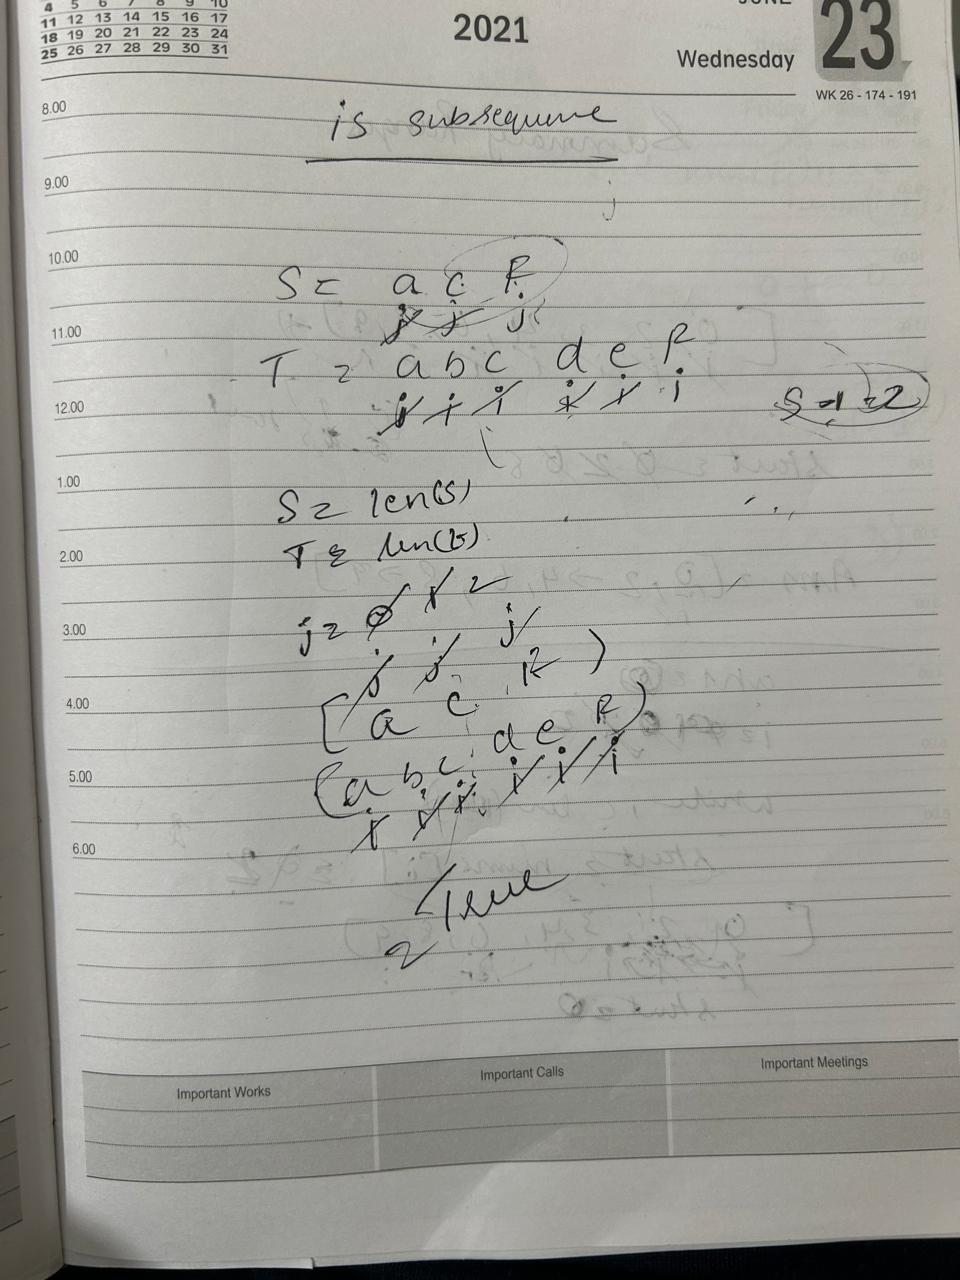 4 5 6 7 8 9 10
11 12 13 14 15 16 17
18 19 20 21 22 23 24
25 26 27 28 29 30 31
2021
JUNE
23
Wednesday
WK 26 - 174 - 191
8.00
is subsequence
9.00
j
10.00
S = a c f
j j j
11.00
T = a b c d e f
i i i i i i
12.00
S - 1 = 2
1.00
S = len(s)
2.00
T = len(t)
j = 0 1 2
3.00
j j j
4.00
[ a c f )
( a b c d e f )
5.00
i i i i i i
6.00
True
2
Important Works
Important Calls
Important Meetings